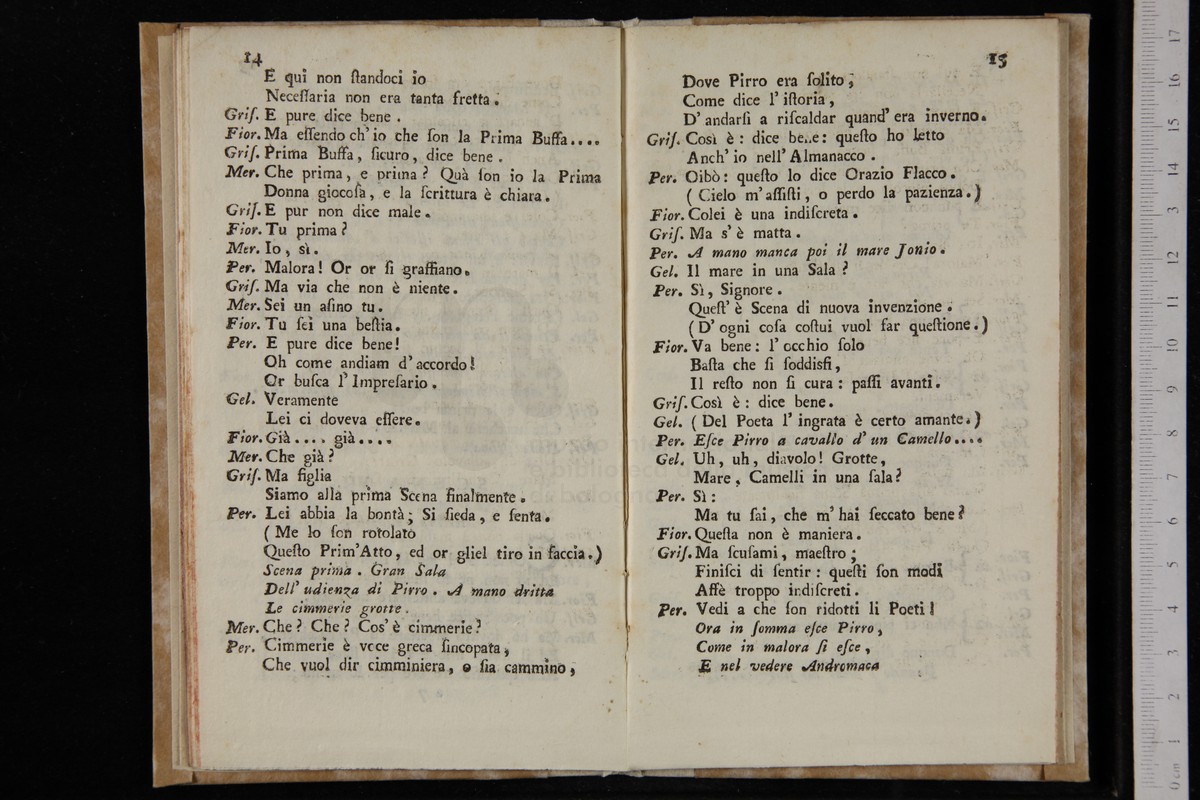 14
E qui non ſtandoci io
Neceſſaria non era tanta fretta.
Griſ. E pure dice bene.
Fior. Ma eſſendo ch' io che ſon la Prima Buffa....
Griſ. Prima Buffa, ſicuro, dice bene.
Mer. Che prima, e prima? Quà ſon io la Prima
Donna giocoſa, e la ſcrittura è chiara.
Griſ. E pur non dice male.
Fior. Tu prima?
Mer. Io, sì.
Per. Malora! Or or ſi graffiano.
Griſ. Ma via che non è niente.
Mer. Sei un aſino tu.
Fior. Tu ſei una beſtia.
Per. E pure dice bene!
Oh come andiam d' accordo!
Or buſca l' Impreſario.
Gel. Veramente
Lei ci doveva eſſere.
Fior. Già.... già....
Mer. Che già?
Griſ. Ma figlia
Siamo alla prima Scena finalmente.
Per. Lei abbia la bontà; Si ſieda, e ſenta.
( Me lo ſon rotolato
Queſto Prim' Atto, ed or gliel tiro in faccia.)
Scena prima. Gran Sala
Dell' udienza di Pirro. A mano dritta
Le cimmerie grotte.
Mer. Che? Che? Cos' è cimmerie?
Per. Cimmerie è voce greca ſincopata,
Che vuol dir cimminiera, o ſia cammino,
15
Dove Pirro era ſolito,
Come dice l' iſtoria,
D' andarſi a riſcaldar quand' era inverno.
Griſ. Così è: dice be..e: queſto ho letto
Anch' io nell' Almanacco.
Per. Oibò: queſto lo dice Orazio Flacco.
( Cielo m' aſſiſti, o perdo la pazienza.)
Fior. Colei è una indiſcreta.
Griſ. Ma s' è matta.
Per. A mano manca poi il mare Jonio.
Gel. Il mare in una Sala?
Per. Sì, Signore.
Queſt' è Scena di nuova invenzione.
( D' ogni coſa coſtui vuol far queſtione.)
Fior. Va bene: l' occhio ſolo
Baſta che ſi ſoddisfi,
Il reſto non ſi cura: paſſi avanti.
Griſ. Così è: dice bene.
Gel. ( Del Poeta l' ingrata è certo amante.)
Per. Eſce Pirro a cavallo d' un Camello....
Gel. Uh, uh, diavolo! Grotte,
Mare, Camelli in una ſala?
Per. Sì:
Ma tu ſai, che m' hai ſeccato bene?
Fior. Queſta non è maniera.
Griſ. Ma ſcuſami, maeſtro;
Finiſci di ſentir: queſti ſon modi
Affè troppo indiſcreti.
Per. Vedi a che ſon ridotti li Poeti!
Ora in ſomma eſce Pirro,
Come in malora ſi eſce,
E nel vedere Andromaca